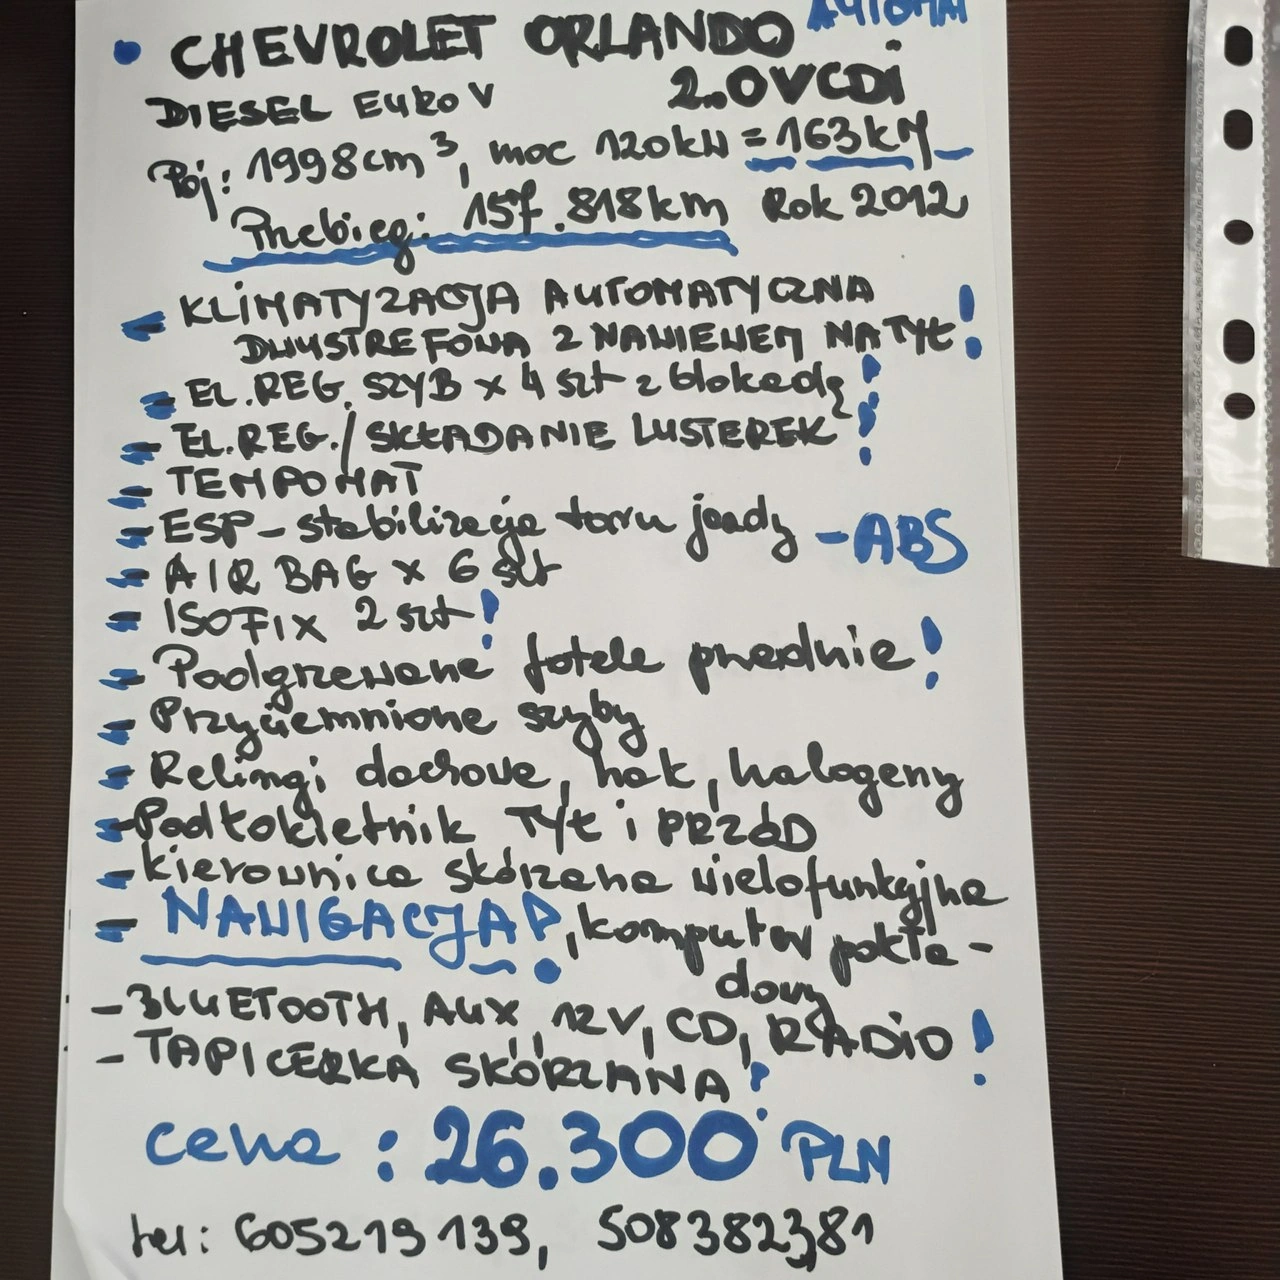 AUTOMAT
• CHEVROLET ORLANDO
DIESEL EURO V 2.0VCDi
Poj: 1998cm³, moc 120kW = 163kM
Przebieg: 157.818km Rok 2012
- KLIMATYZACJA AUTOMATYCZNA
DWUSTREFOWA Z NAWIEWEM NA TYŁ!
- EL. REG. SZYB x 4 szt z blokadą!
- EL.REG./SKŁADANIE LUSTEREK!
- TEMPOMAT
- ESP - stabilizacja toru jazdy - ABS
- AIR BAG x 6 szt
- ISOFIX 2 szt!
- Podgrzewane fotele przednie!
- Przyciemnione szyby
- Relingi dachowe, hak, halogeny
- Podłokietnik TYŁ i PRZÓD
- kierownica skórzana wielofunkcyjna
- NAWIGACJA!, komputer pokła-
dowy
- BLUETOOTH, AUX, 12V, CD, RADIO!
- TAPICERKA SKÓRZANA!
cena: 26.300 PLN
tel: 605219139, 508382381